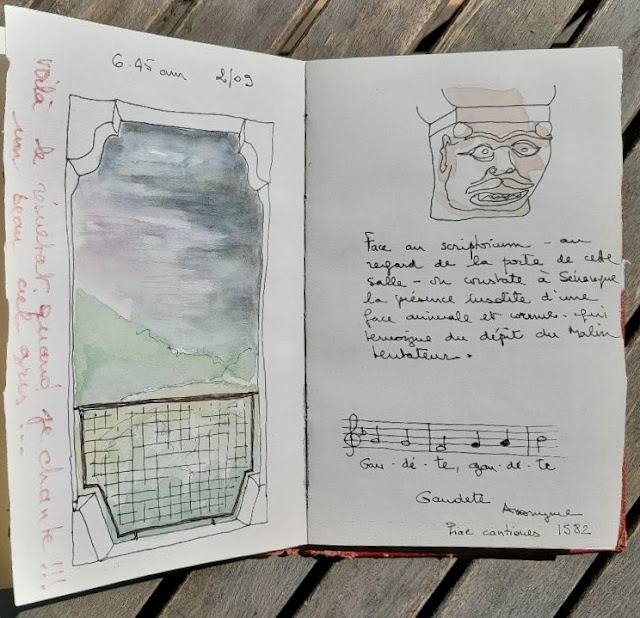 6.45 am 2/09
Voilà le résultat, quand je chante !!!
un beau ciel gris ...
Face au scriptorium - au
regard de la porte de cette
salle - on constate à Sénanque
la présence insolite d'une
face animale et cornue - qui
témoigne du dépit du Malin
tentateur.
Gau - dé - te, gau - de - te
Gaudete
Anonyme
Piae cantiones 1582